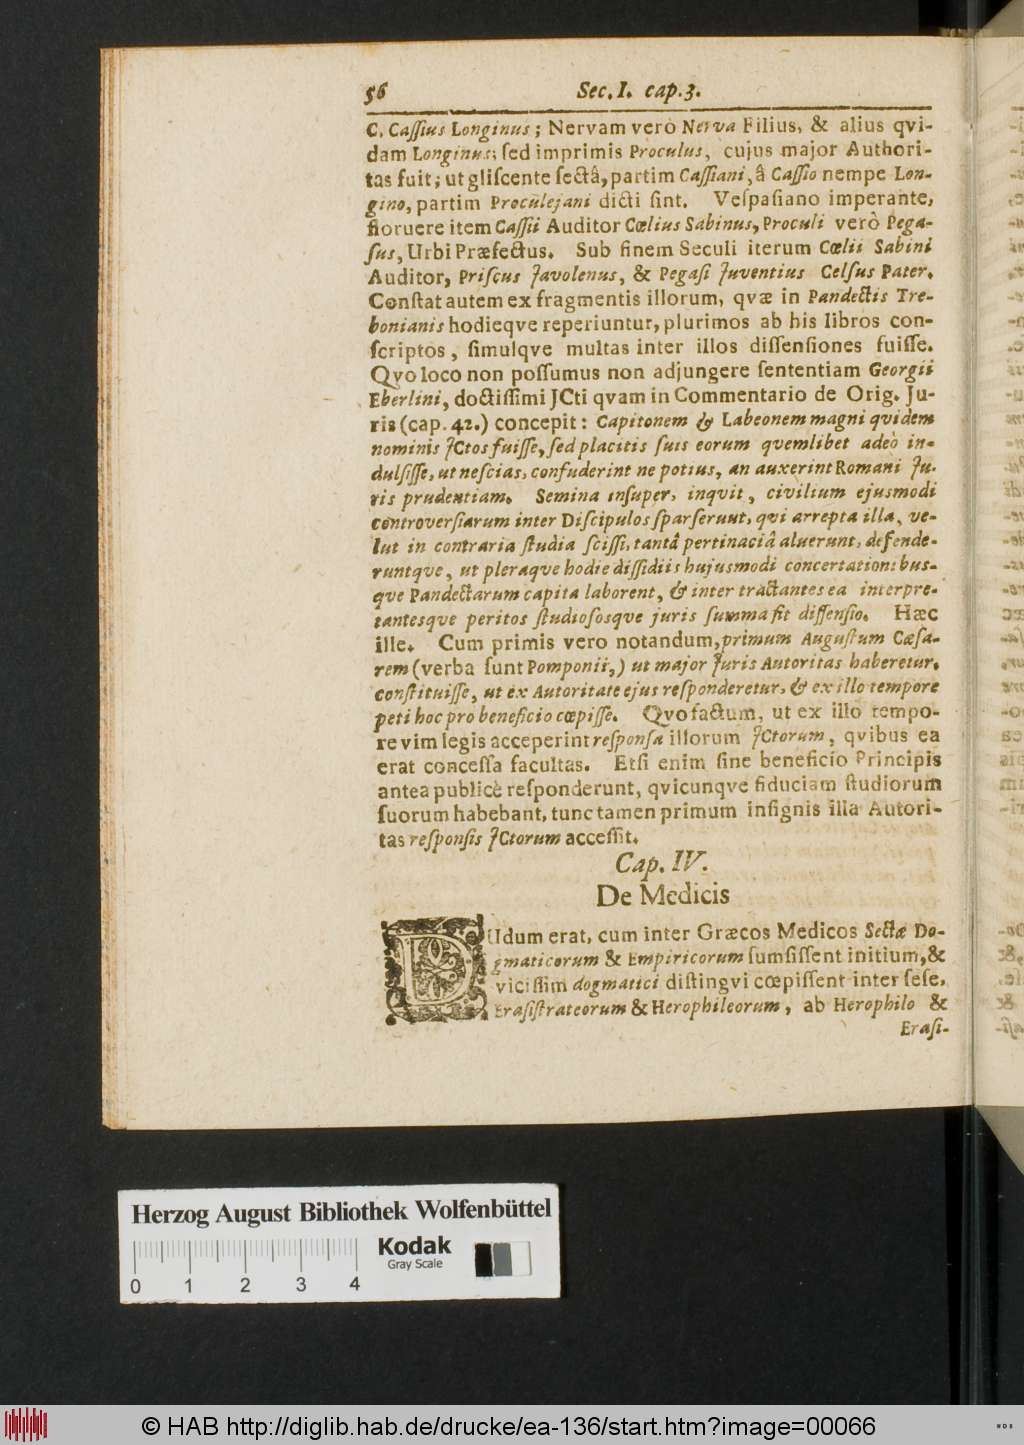 56 Sec. I. cap. 3.
C. Caſſius Longinus; Nervam verò Nerva Filius, & alius qvi-
dam Longinus; ſed imprimis Proculus, cujus major Authori-
tas fuit; ut gliſcente ſectâ, partim Caſſiani, â Caſſio nempe Lon-
gino, partim Proculejani dicti ſint. Veſpaſiano imperante,
floruere item Caſſii Auditor Cœlius Sabinus, Proculi verò Pega-
ſus, Urbi Præfectus. Sub finem Seculi iterum Cœlii Sabini
Auditor, Priſcus Javolenus, & Pegaſi Juventius Celſus Pater.
Conſtat autem ex fragmentis illorum, qvæ in Pandectis Tre-
bonianis hodieqve reperiuntur, plurimos ab his libros con-
ſcriptos, ſimulqve multas inter illos diſſenſiones fuiſſe.
Qvo loco non poſſumus non adjungere ſententiam Georgii
Eberlini, doctiſſimi JCti qvam in Commentario de Orig. Ju-
ris (cap. 42.) concepit: Capitonem & Labeonem magni qvidem
nominis JCtos fuiſſe, ſed placitis ſuis eorum qvemlibet adeò in-
dulſiſſe, ut neſcias, confuderint ne potius, an auxerint Romani Ju-
ris prudentiam. Semina inſuper, inqvit, civilium ejusmodi
controverſiarum inter Diſcipulos ſparſerunt, qvi arrepta illa, ve-
lut in contraria ſtudia ſciſſi, tantâ pertinaciâ aluerunt, defende-
runtqve, ut pleraqve hodie diſſidiis hujusmodi concertationibus-
qve Pandectarum capita laborent, & inter tractantes ea interpre-
tantesqve peritos ſtudioſosqve juris ſumma fit diſſenſio. Hæc
ille. Cum primis vero notandum, primum Auguſtum Cæſa-
rem (verba ſunt Pomponii,) ut major Juris Autoritas haberetur,
conſtituiſſe, ut ex Autoritate ejus reſponderetur, & ex illo tempore
peti hoc pro beneficio cœpiſſe. Qvo factum, ut ex illo tempo-
re vim legis acceperint reſponſa illorum JCtorum, qvibus ea
erat conceſſa facultas. Etſi enim ſine beneficio Principis
antea publicè reſponderunt, qvicunqve fiduciam ſtudiorum
ſuorum habebant, tunc tamen primum inſignis illa Autori-
tas reſponſis JCtorum acceſſit.
Cap. IV.
De Medicis
DUdum erat, cum inter Græcos Medicos Sectæ Do-
gmaticorum & Empiricorum ſumſiſſent initium, &
viciſſim dogmatici diſtingvi cœpiſſent inter ſeſe,
Eraſiſtrateorum & Herophileorum, ab Herophilo &
Eraſi-
Herzog August Bibliothek Wolfenbüttel
Kodak
Gray Scale
0 1 2 3 4
© HAB http://diglib.hab.de/drucke/ea-136/start.htm?image=00066